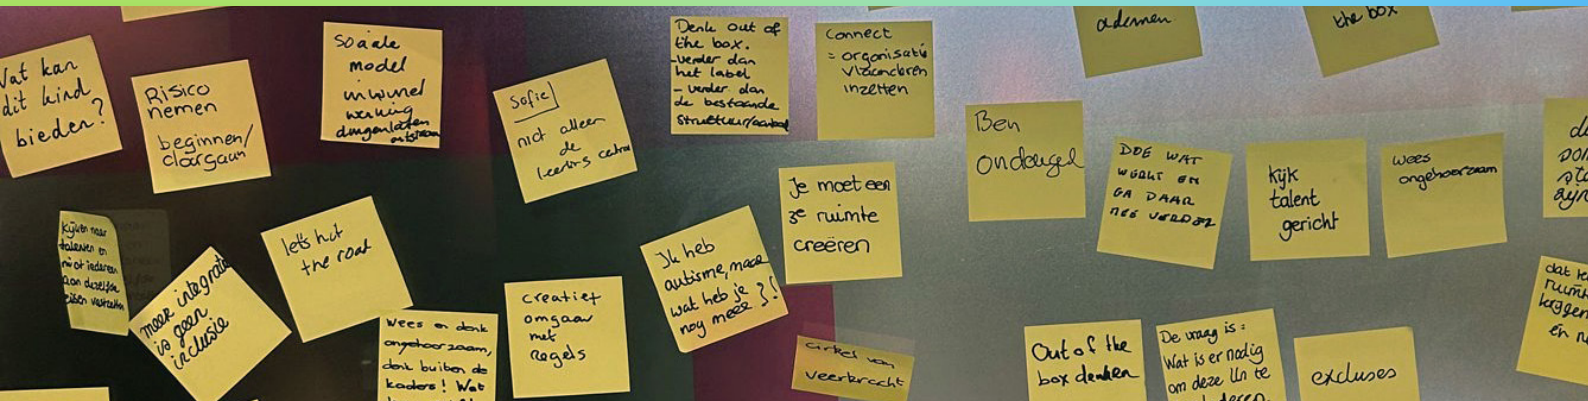 Wat kan
dit kind
bieden?
Risico
nemen
beginnen/
doorgaan
Sociale
model
in
werking
dingen laten
Sofie
niet alleen
de
leerling's
Denk out of
the box.
-verder dan
het label
- verder dan
de bestaande
structuur/aanbod
Connect
= organisatie
vlaanderen
inzetten
ademen
the box
Ben
ondeugd
DOE WAT
WERKT EN
GA DAAR
MEE VERDER
kijk
talent
gericht
wees
ongehoorzaam
Kijken naar
talenten en
niet iedereen
aan dezelfde
eisen
meer integratie
is geen
inclusie
let's hit
the road
wees en denk
ongehoorzaam,
denk buiten de
kaders! Wat
creatief
omgaan
met
regels
Ik heb
autisme, maar
wat heb je
nog meer?!
Je moet een
3e ruimte
creëren
cirkel van
veerkracht
Out of the
box denken
De vraag is:
Wat is er nodig
om deze lln te
excuses
ruimte
krijgen
en